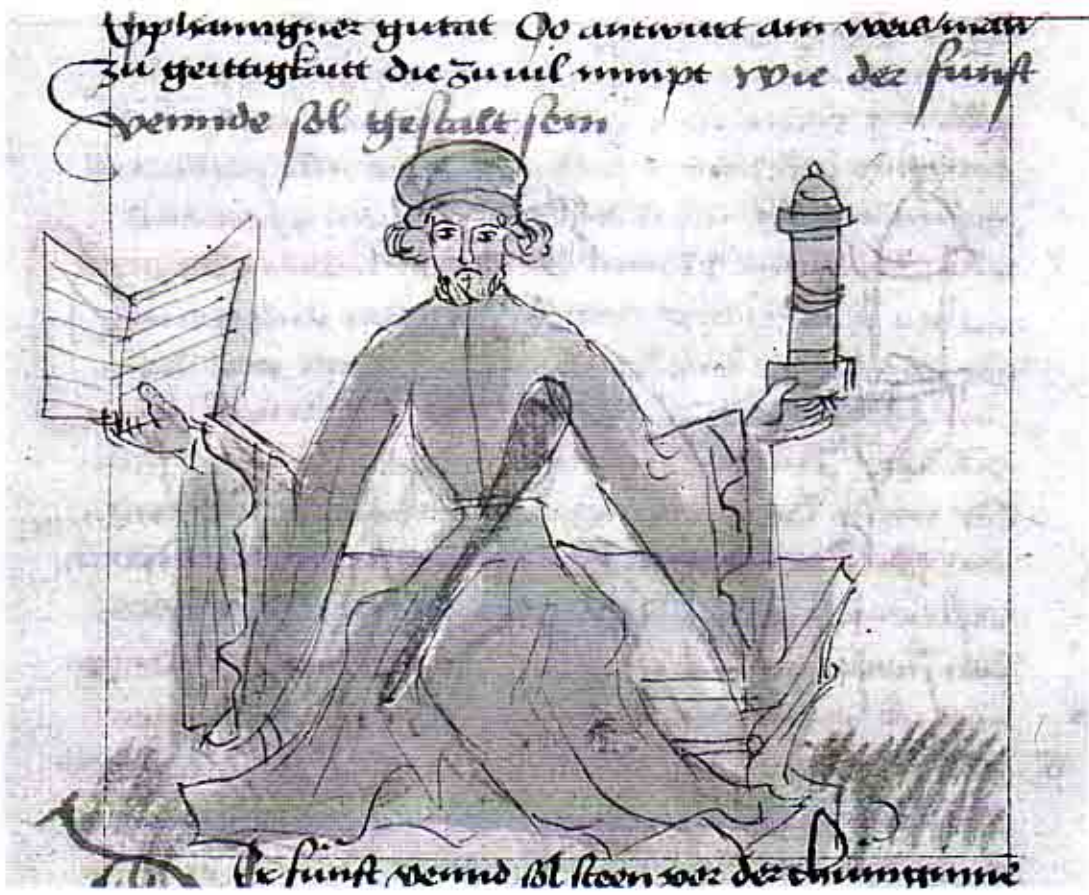 gutat So antwurt ain weis man
zu geittigkaitt die zuuil nimpt wie der funft
vennde sol gestalt sein
Der funft vennd sol steen vor der